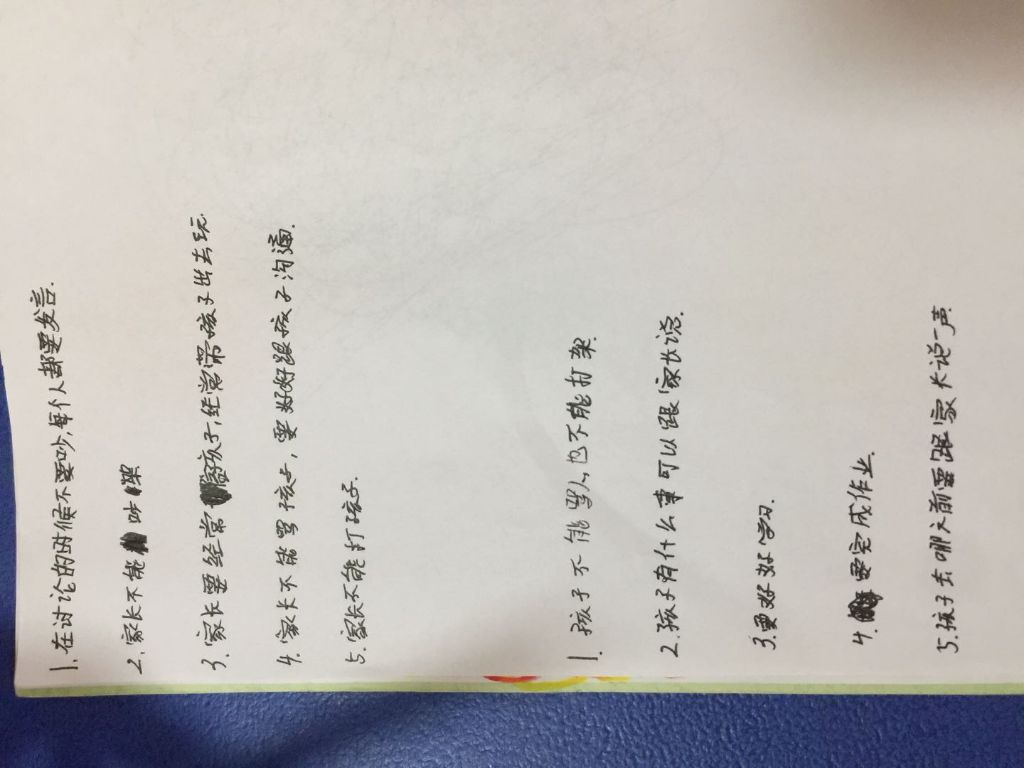 1. 在讨论的时候不要吵,每个人都要发言.
2. 家长不能吵架
3. 家长要经常陪孩子,经常带孩子出去玩.
4. 家长不能骂孩子,要好好跟孩子沟通.
5. 家长不能打孩子.
1. 孩子不能骂人,也不能打架
2. 孩子有什么事可以跟家长说.
3. 要好好学习.
4. 要完成作业.
5. 孩子去哪之前要跟家长说一声